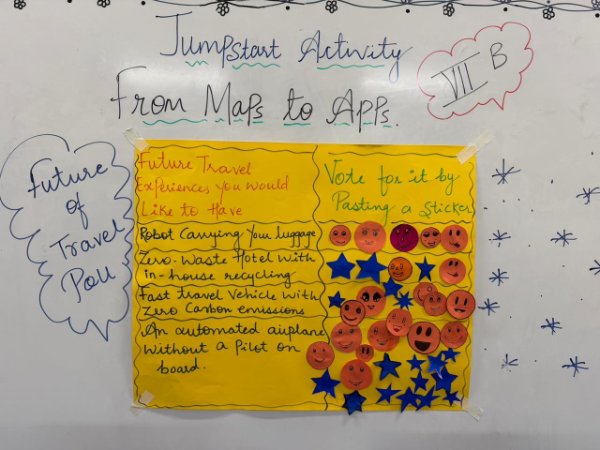 Jumpstart Activity
From Maps to Apps.
VII B
Future
of
Travel
Poll
Future Travel
Experiences you would
Like to Have
Vote for it by
Pasting a Sticker
Robot Carrying Your luggage
Zero-Waste Hotel with
in-house recycling
Fast travel Vehicle with
Zero Carbon emissions
An automated airplane
Without a Pilot on
board.